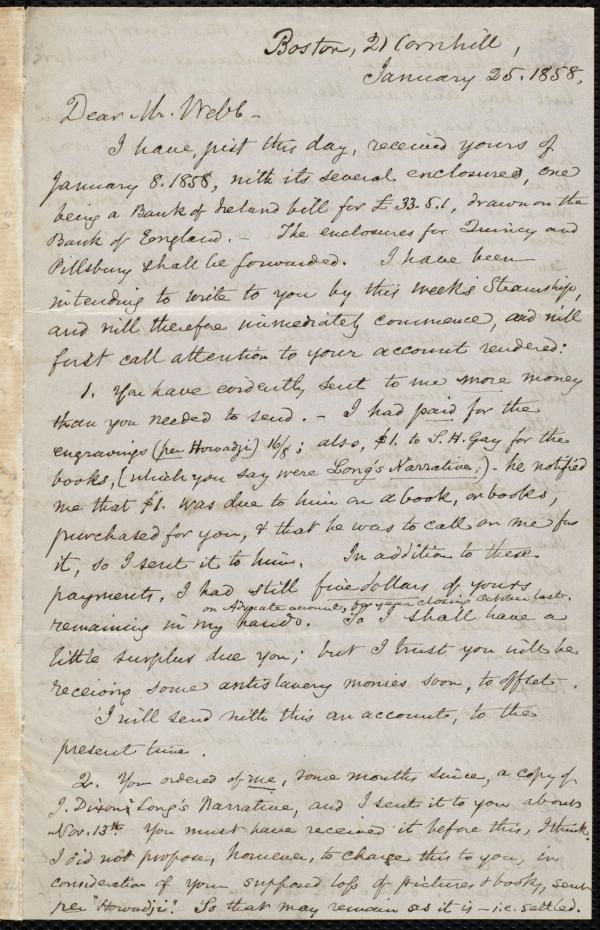 Boston, 21 Cornhill,
January 25. 1858.
Dear Mr. Webb –
I have, just this day, received yours of
January 8. 1858, with its several enclosures, one
being a Bank of Ireland bill for £33.5.1, drawn on the
Bank of England. – The enclosures for Quincy and
Pillsbury shall be forwarded. I have been
intending to write to you by this week's Steamship,
and will therefore immediately commence, and will
first call attention to your account rendered:
1. You have evidently sent to me more money
than you needed to send. – I had paid for the
engravings (per Howadji) 16/8; also, $1. to S. H. Gay for the
books, (which you say were Long's Narrative;) – he notified
me that $1. was due to him on a book, or books,
purchased for you, & that he was to call on me for
it, so I sent it to him. In addition to these
payments, I had still five dollars of yours
on Advocate account, for year closing October last.
remaining in my hands. So I shall have a
little surplus due you; but I trust you will be
receiving some antislavery monies soon, to offset.
I will send with this an account, to the
present time.
2. You ordered of me, some months since, a copy of
J. Dixon Long's Narrative, and I sent it to you about
Nov. 13th. You must have received it before this, I think.
I did not propose, however, to charge this to you, in
consideration of your supposed loss of pictures & books, sent
per "Howadji". So that may remain as it is – i.e. settled.